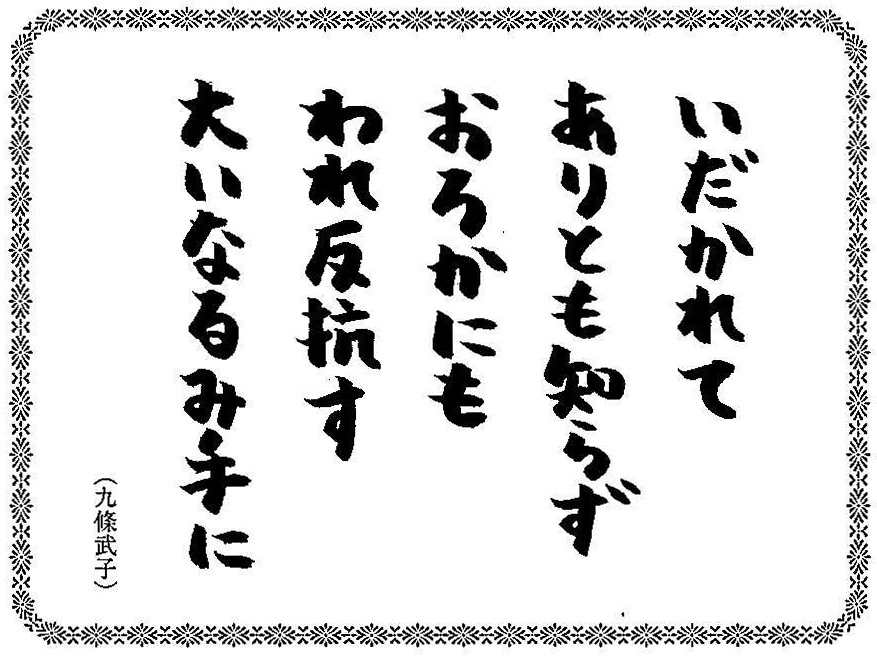 いだかれて
ありとも知らず
おろかにも
われ反抗す
大いなるみ手に
(九條武子)